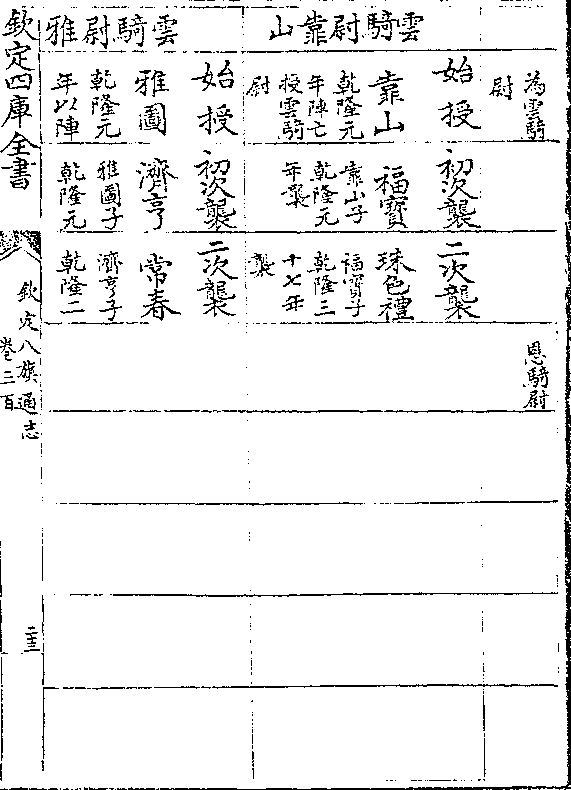 為雲騎
尉
恩騎尉
雲騎尉靠山
始授
靠山
乾隆元
年陣亡
授雲騎
尉
初次襲
福寶
靠山子
乾隆元
年襲
二次襲
珠色禮
福寶子
乾隆三
十七年
襲
雲騎尉雅
始授
雅圖
乾隆元
年以陣
初次襲
濟亨
雅圖子
乾隆元
二次襲
常春
濟亨子
乾隆二
欽定四庫全書
欽定八旗通志
卷三百
二十三